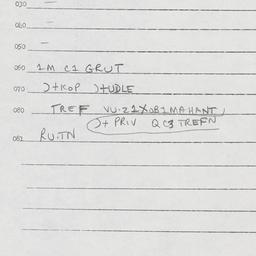 030 —
040 —
050 —
060 1M C1 GRUT
070 )+KOP )+UDLE
080 TREF VU.21XOB1MAHANT)
)+ PRIV QC3 TREFN
081 RU.TN